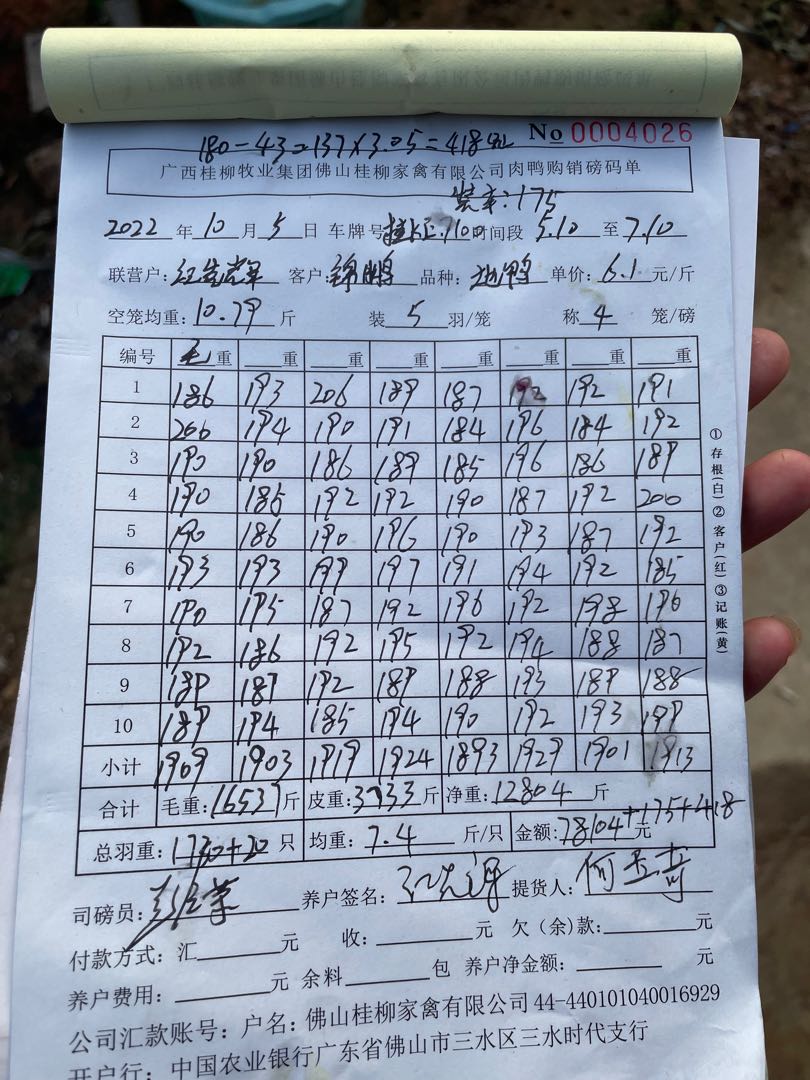 180-43=137×3.05=418元
No 0004026
广西桂柳牧业集团佛山桂柳家禽有限公司肉鸭购销磅码单
装车:175
2022 年 10 月 5 日 车牌号 时间段 5.10 至 7.10
联营户: 客户:锦鹏 品种: 鸭 单价:6.1 元/斤
空笼均重:10.79 斤 装 5 羽/笼 称 4 笼/磅
编号 毛重 重 重 重 重 重 重 重
1 186 193 206 189 187 192 192 191
2 200 194 190 191 184 196 184 192
3 190 190 186 189 185 196 186 189
4 190 185 192 192 190 187 192 200
5 190 186 190 196 190 193 187 192
6 193 193 199 197 191 194 192 185
7 190 195 187 192 196 192 198 190
8 192 186 192 195 192 194 188 187
9 189 187 192 189 188 193 189 188
10 189 194 185 194 190 192 193 199
小计 1909 1903 1919 1924 1893 1929 1901 1913
合计 毛重:16537斤 皮重:3733斤 净重:12804 斤
总羽重:1730+20 只 均重:7.4 斤/只 金额:78104+175+418 元
①存根(白)②客户(红)③记账(黄)
司磅员: 养户签名: 提货人:
付款方式:汇 元 收: 元 欠(余)款: 元
养户费用: 元 余料 包 养户净金额: 元
公司汇款账号:户名:佛山桂柳家禽有限公司44-440101040016929
开户行:中国农业银行广东省佛山市三水区三水时代支行